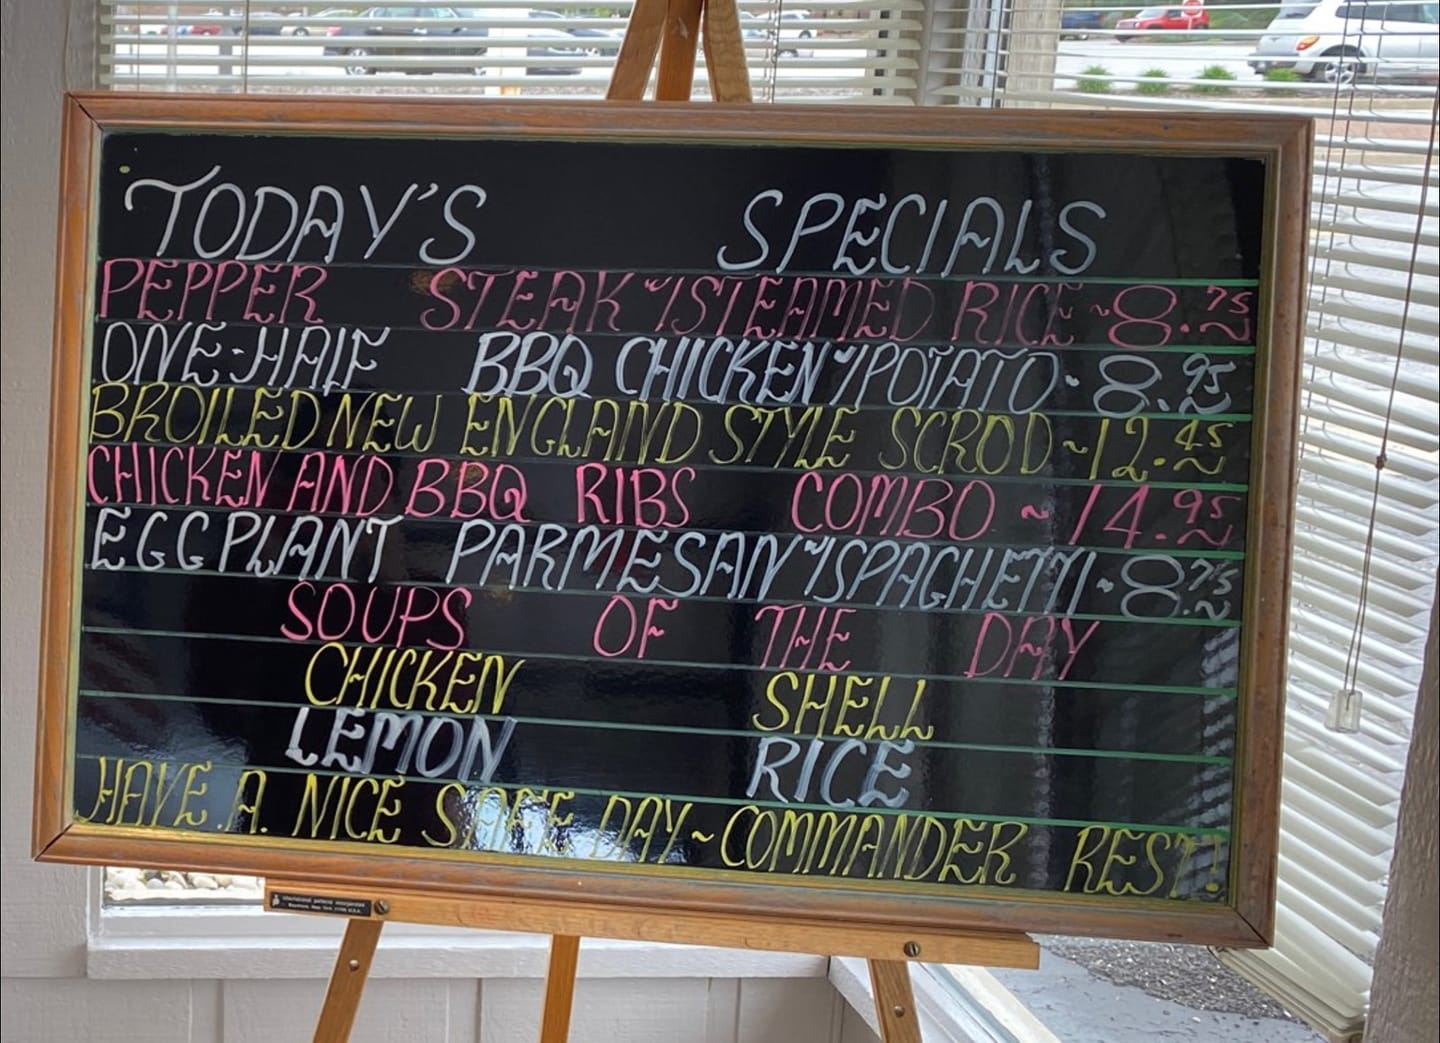 TODAY'S SPECIALS
PEPPER STEAK W/STEAMED RICE ~ 8.75
ONE-HALF BBQ CHICKEN W/POTATO · 8.95
BROILED NEW ENGLAND STYLE SCROD ~ 12.45
CHICKEN AND BBQ RIBS COMBO ~ 14.95
EGGPLANT PARMESAN W/SPAGHETTI · 8.75
SOUPS OF THE DAY
CHICKEN SHELL
LEMON RICE
HAVE A NICE SAFE DAY ~ COMMANDER REST!